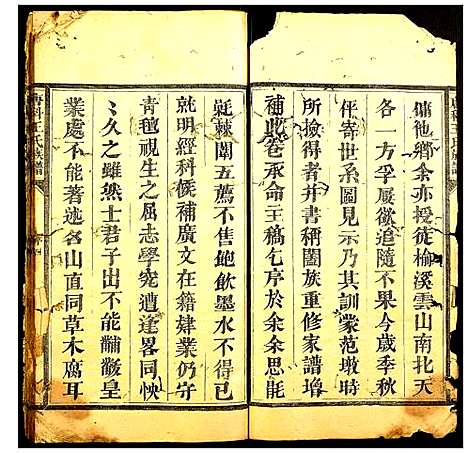 傭他鄉余亦授徒榆溪雲山南北天
各一方孚屢欲追隨不果今歲季秋
伻寄世系圖見示乃其訓蒙范墩時
所撿得者并書稱闔族重修家譜增
補此卷承命主稿乞序於余余思髦
唐科王氏族譜
眊棘闈五薦不售飽飲墨水不得已
就明經科候補廣文在籍肄業仍守
青氊視生之屈志學宪遭逢畧同怏
怏久之雖然士君子出不能黼黻皇
業處不能著述名山直同草木腐耳